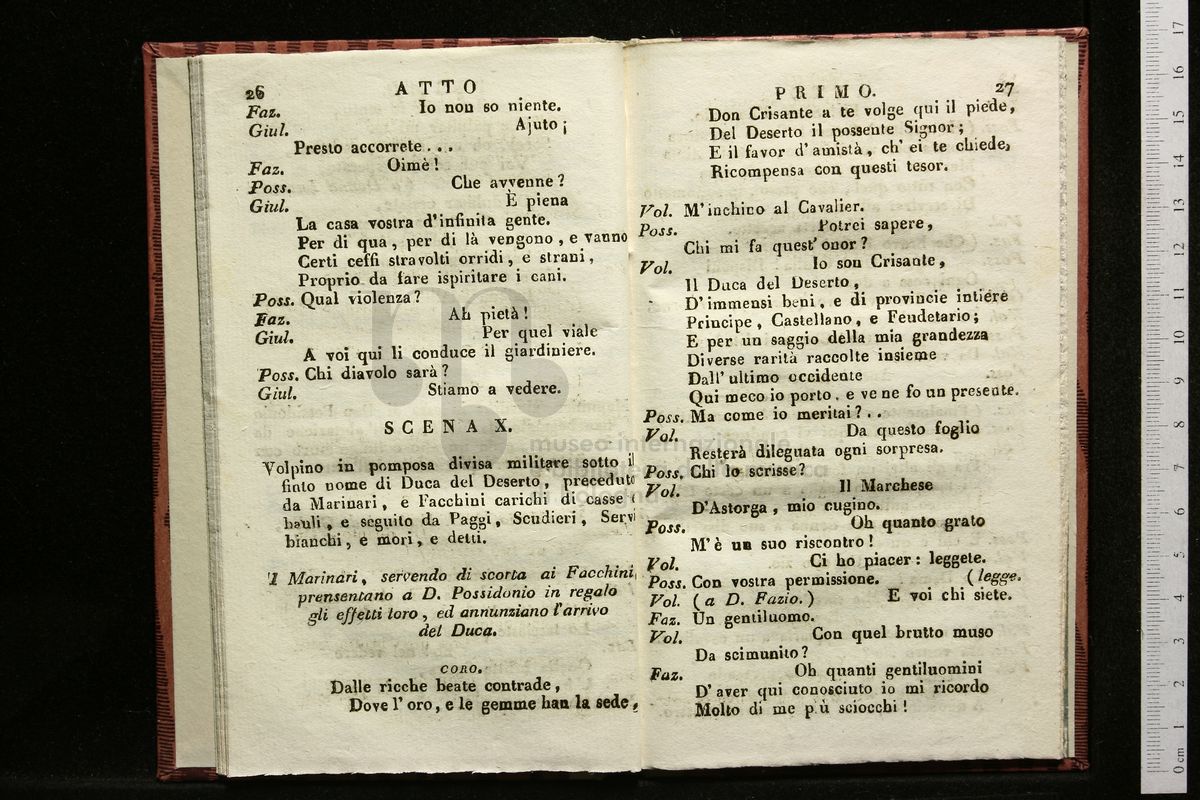 26
ATTO
Faz. Io non so niente.
Giul. Ajuto;
Presto accorrete...
Faz. Oimè!
Poss. Che avvenne?
Giul. È piena
La casa vostra d'infinita gente.
Per di qua, per di là vengono, e vanno
Certi ceffi stravolti orridi, e strani,
Proprio da fare ispiritare i cani.
Poss. Qual violenza?
Faz. Ah pietà!
Giul. Per quel viale
A voi qui li conduce il giardiniere.
Poss. Chi diavolo sarà?
Giul. Stiamo a vedere.
SCENA X.
Volpino in pomposa divisa militare sotto il
finto nome di Duca del Deserto, preceduto
da Marinari, e Facchini carichi di casse
bauli, e seguito da Paggi, Scudieri, Servi
bianchi, e mori, e detti.
I Marinari, servendo di scorta ai Facchini
prensentano a D. Possidonio in regalo
gli effetti loro, ed annunziano l'arrivo
del Duca.
CORO.
Dalle ricche beate contrade,
Dove l'oro, e le gemme han la sede,
PRIMO.
27
Don Crisante a te volge qui il piede,
Del Deserto il possente Signor;
E il favor d'amistà, ch' ei te chiede,
Ricompensa con questi tesor.
Vol. M'inchino al Cavalier.
Poss. Potrei sapere,
Chi mi fa quest' onor?
Vol. Io son Crisante,
Il Duca del Deserto,
D'immensi beni, e di provincie intiere
Principe, Castellano, e Feudetario;
E per un saggio della mia grandezza
Diverse rarità raccolte insieme
Dall' ultimo occidente
Qui meco io porto, e ve ne fo un presente.
Poss. Ma come io meritai?..
Vol. Da questo foglio
Resterà dileguata ogni sorpresa.
Poss. Chi lo scrisse?
Vol. Il Marchese
D'Astorga, mio cugino.
Poss. Oh quanto grato
M'è un suo riscontro!
Vol. Ci ho piacer: leggete.
Poss. Con vostra permissione. (legge.
Vol. (a D. Fazio.) E voi chi siete.
Faz. Un gentiluomo.
Vol. Con quel brutto muso
Da scimunito?
Faz. Oh quanti gentiluomini
D'aver qui conosciuto io mi ricordo
Molto di me più sciocchi!
museo internazionale
0 cm 1 2 3 4 5 6 7 8 9 10 11 12 13 14 15 16 17